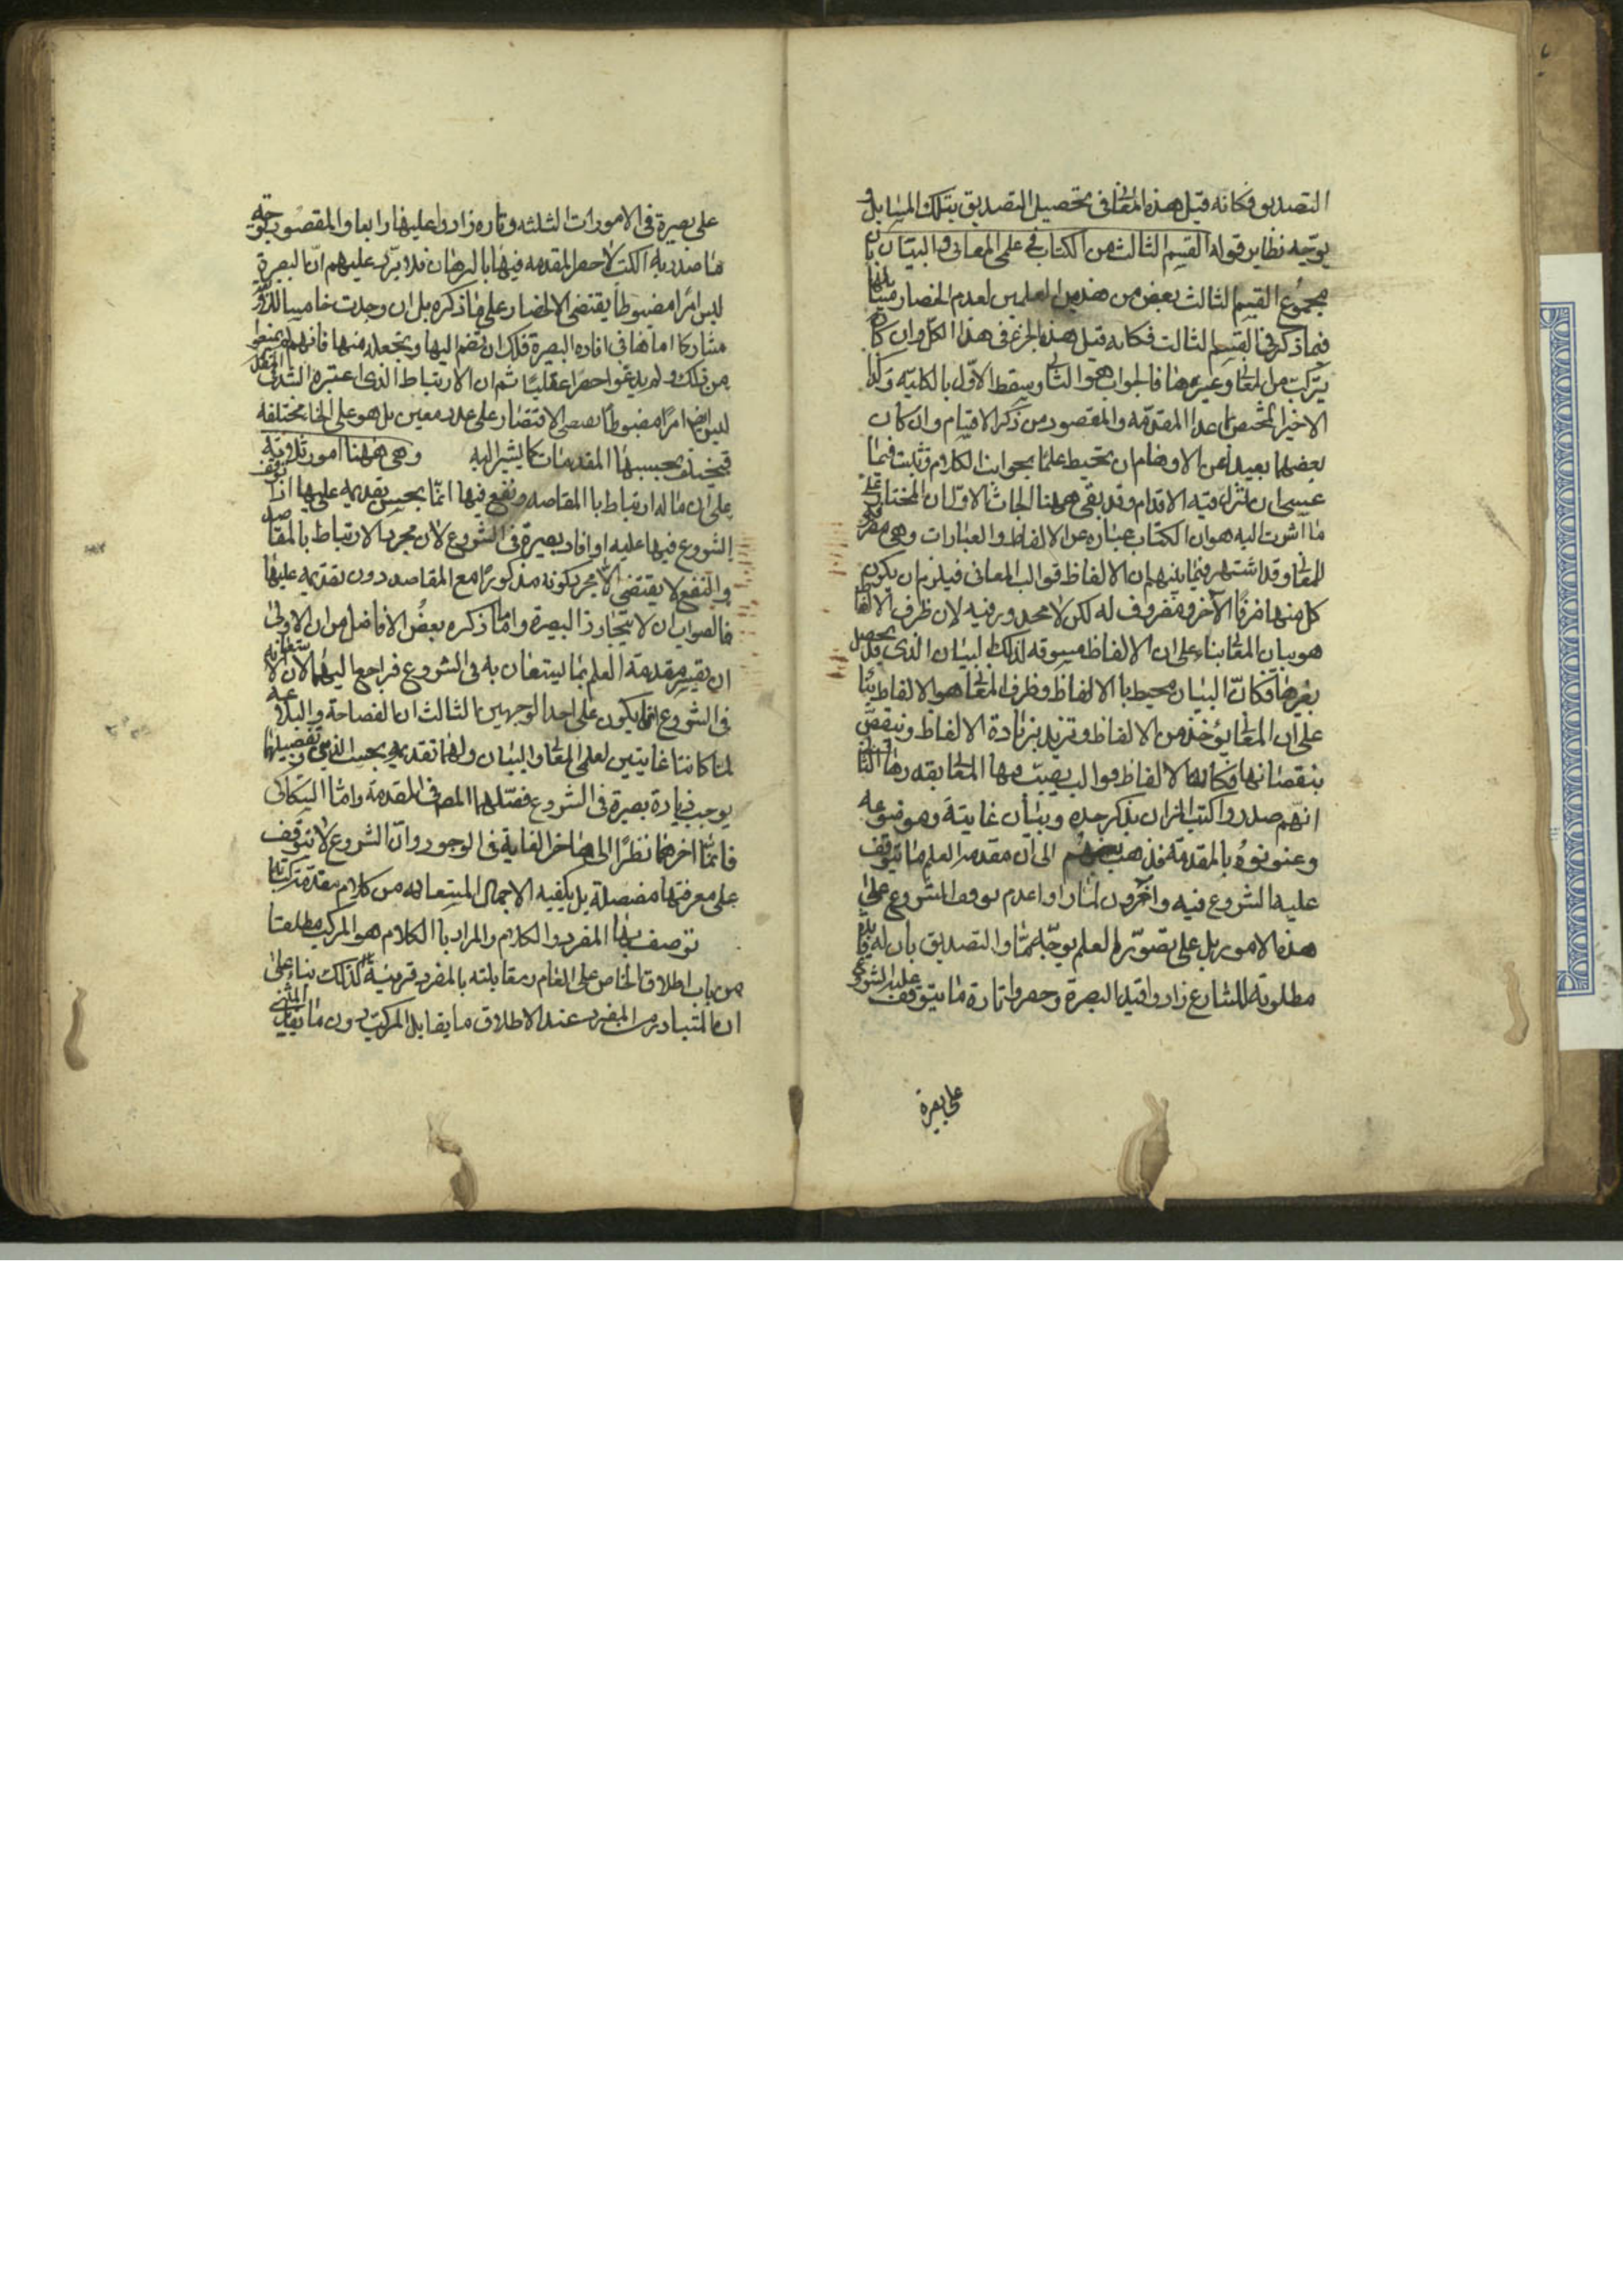 التصديق فكانه قيل هذه المعانى فى تحصيل التصديق بتلك المسايل و
يوجه نظاير قوله القسم الثالث من الكتاب فى علمى المعانى والبيان بان
مجموع القسم الثالث بعض من هذين العلمين لعدم انحصار مسائلهما
فيما ذكر فى القسم الثالث فكانه قيل هذه الجزء فى هذا الكل وان كان
يتركب من المعانى وغيرها فالجواب هو الثانى ويسقط الاول بالكلية وكذا
الاخير ان خص ما عدا المقدمة والمقصود من ذكر الاقسام وان كان
بعضها بعيدا عن الاوهام ان تحيط علما بجوانب الكلام وتثبت فيما
عسى ان تزل فيه الاقدام وقد بقى ههنا ابحاث الاول ان المختار على
ما اشرت اليه هو ان الكتاب عبارة عن الالفاظ والعبارات وهى
المعانى وقد اشتهر فيما بينهم ان الالفاظ قوالب المعانى فيلزم ان يكون
كل منهما ظرفا للآخر ومظروف له لكن لا محذور فيه لان ظرف الالفاظ
هو بيان المعانى بناء على ان الالفاظ مسوقه لذلك البيان الذى قد يحصل
بغيرها فكان البيان محيط با الالفاظ وظرف المعانى هو الالفاظ بناء
على ان المعانى يؤخذ من الالفاظ وتزيد بزيادة الالفاظ وينقص
بنقصانها فكانها الالفاظ قوالب يصب فيها المعانى بقدرها الثانى
انهم صدروا كتب الميزان بذكر حده وبيان غايته وموضوعه
وعنونوه بالمقدمة فذهب بعضهم الى ان مقدمة العلم ما يتوقف
عليه الشروع فيه واخرون لما راوا عدم توقف الشروع على
هذه الامور بل على تصور العلم بوجه ما والتصديق بان له فايدة
مطلوبة للشارع زادوا قيد البصرة وحصروا تارة ما يتوقف عليه الشروع
على بصرة
على بصيرة فى الامور الثلثه وتاره زادوا عليها رابعا والمقصود توجيه
ما صدر به الكتب لا حصر المقدمه فيها بالبرهان فلا يرد عليهم ان البصرة
ليس امرا مضبوطا يقتضى الاقتصار على ما ذكره بل ان وجدت خامسا
مشاركا اماها فى افاده البصيرة فلك ان تضم اليها وتجعله منها فانهم لم يمنعوا
من ذلك ولم يدعوا حصرا عقليا ثم ان الارتباط الذى اعتبره الشارح
ليس ايضا امرا مضبوطا يقتضى الاقتصار على عدد معين بل هو على انحا مختلفه
فيختلف بحسبها المقدمات كما يشير اليه وهى ههنا امور ثلاثة
على ان ما له ارتباط با المقاصد ونفع فيها انما يحسن تقديمه عليها اذا توقف
الشروع فيها عليه او افاد بصيرة فى الشروع لان مجرد الارتباط بالمقاصد
والنفع لا يقتضى الا مجرد كونه مذكورا مع المقاصد دون تقديمه عليها
فالصواب ان لا يتجاوز البصيرة واما ذكره بعض الافاضل من ان الاولى
ان يفسر مقدمة العلم بما يستعان به فى الشروع فراجع اليهما لان الاستعانة
فى الشروع انما يكون على احد الوجهين الثالث ان الفصاحة والبلاغة
لما كانتا غايتين لعلمى المعانى والبيان
يوجب زيادة بصيرة فى الشروع فصلهما المصنف فى المقدمة واما السكاكى
فانما اخرهما نظرا الى تاخر الغاية فى الوجود وان الشروع لا يتوقف
على معرفتها مفصلة بل يكفيه الاجمال المستفاد من كلام مقدمة كتابه
توصف بها المفرد والكلام والمراد با الكلام هو المركب مطلقا
من باب اطلاق الخاص على العام ومقابلته بالمفرد قرينة لذلك بناء على
ان المتبادر من المفرد عند الاطلاق ما يقابل المركب دون ما يقابل المثنى